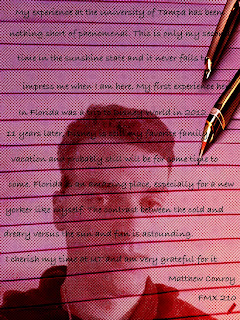 My experience at the university of Tampa has been
nothing short of phenomenal. This is only my second
time in the sunshine state and it never fails to
impress me when I am here. My first experience here
In Florida was a to world in 2010
11 years later, is still my favorite family
vacation and probably still will be for some time to
come. Florida is an amazing place, especially for a new
yorker like myself. The contrast between the cold and
dreary versus the sun and fun is astounding.
I cherish my time at UT and am very grateful for it
Matthew Conroy
FMX 210